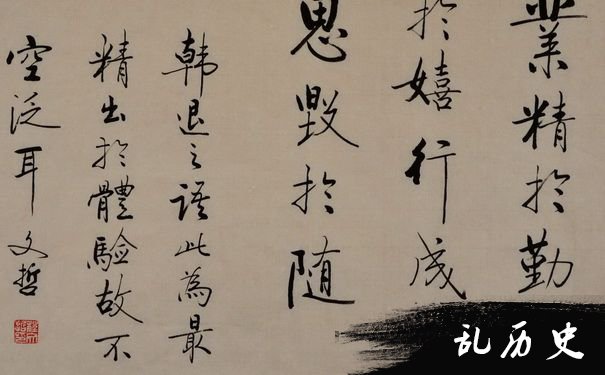 業精於勤
於嬉行成
思毀於随
韩退之語此為最
精出於體驗故不
空泛耳 文哲
乱历史